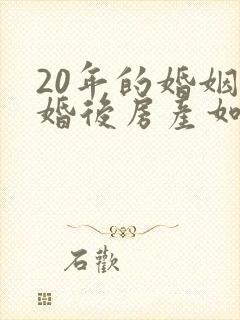 20年的婚姻
婚後房産如
石歡